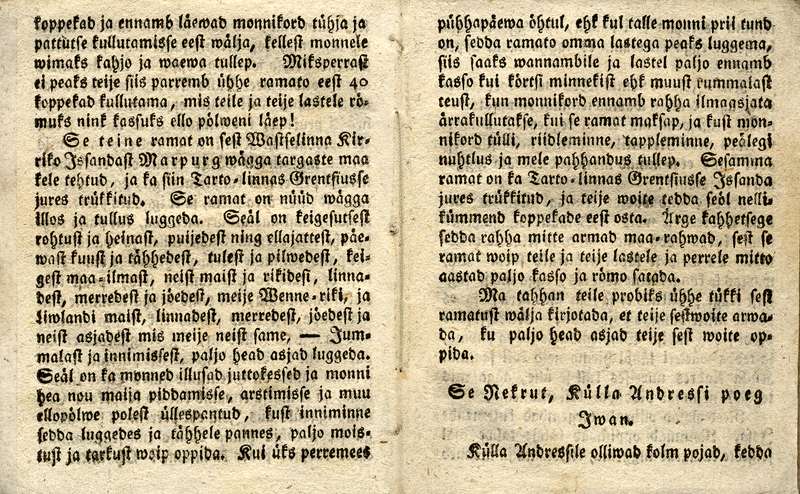 koppekad ja ennamb läewad monnikord tühja ja
pattutse kullutamisse eest wälja, kellest monnele
wimaks kahjo ja waewa tullep. Miksperrast
ei peaks teije siis parremb ühhe ramato eest 40
koppekad kullutama, mis teile ja teije lastele rö-
muks nink kassuks ello pölweni läep!
Se teine ramat on sest Wastselinna Kir-
riko Issandast Marpurg wägga targaste maa
kele tehtud, ja ka siin Tarto-linnas Grentsiusse
jures trükkitud. Se ramat on nüüd wägga
illos ja tullus luggeda. Seäl on keigesutsest
rohtust ja heinast, puijedest ning ellajattest, päe-
wast kuust ja tähhedest, tulest ja pilwedest, kei-
gest maa-ilmast, neist maist ja rikidest, linna-
dest, merredest ja jöedest, meije Wenne-riki, ja
Liwlandi maist, linnadest, merredest, jöedest ja
neist asjadest mis meije neist same, — Jum-
malast ja innimissest, paljo head asjad luggeda.
Seäl on ka monned illusad juttokessed ja monni
hea nou maija piddamisse, arstimisse ja muu
ellopölwe polest üllespantud, kust inniminne
sedda luggedes ja tähhele pannes, paljo mois-
tust ja tarkust woip oppida. Kui üks perremees
pühhapäewa öhtul, ehk kul talle monni prii tund
on, sedda ramato omma lastega peaks luggema,
siis saaks wannambile ja lastel paljo ennamb
kasso kui körtsi minnekist ehk muust rummalast
teust, kun monnikord ennamb rahha ilmagsjata
ärrakullutakse, kui se ramat maksap, ja kust mon-
nikord tülli, riidleminne, tappleminne, peälegi
nuhtlus ja mele pahhandus tullep. Sesamma
ramat on ka Tarto-linnas Grentsiusse Issanda
jures trükkitud, ja teije woite tedda seöl nelli-
kümmend koppekade eest osta. Ärge kahhetsege
sedda rahha mitte armad maa-rahwad, sest se
ramat woip teile ja teije lastele ja perrele mitto
aastad paljo kasso ja römo satada.
Ma tahhan teile probiks ühhe tükki sest
ramatust wälja kirjotada, et teije sestwoite arwa-
da, ku paljo head asjad teije sest woite op-
pida.
Se Nekrut, Külla Andressi poeg
Iwan.
Külla Andressile olliwad kolm pojad, kedda